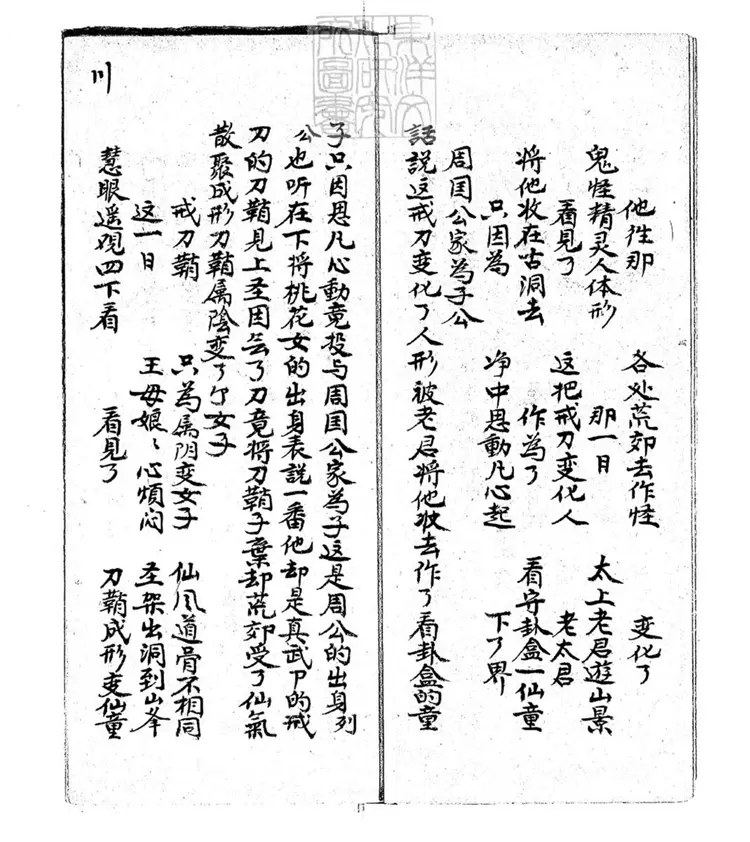 他徃那 各处荒郊去作怪 变化了
鬼怪精灵人体形 那一日 太上老君遊山景
看見了 这把戒刀变化人 老太君
将他收在古洞去 作為了 看守卦盒一仙童
只因為 净中思動凡心起 下了界
周囯公家為子公
話說这戒刀变化了人形被老君将他收去作了看卦盒的童
子只因思凡心動竟投与周囯公家為子这是周公的出身列
公也听在下将桃花女的出身表說一番他却是真武卩的戒
刀的刀鞘見上圣因丢了刀竟将刀鞘子棄却荒郊受了仙氣
散聚成形刀鞘属陰变了个女子
戒刀鞘 只為属阴变女子 仙风道骨不相同
这一日 王母娘〻心煩闷 圣架出洞到山峯
慧眼遥观四下看 看見了 刀鞘成形变仙童
川